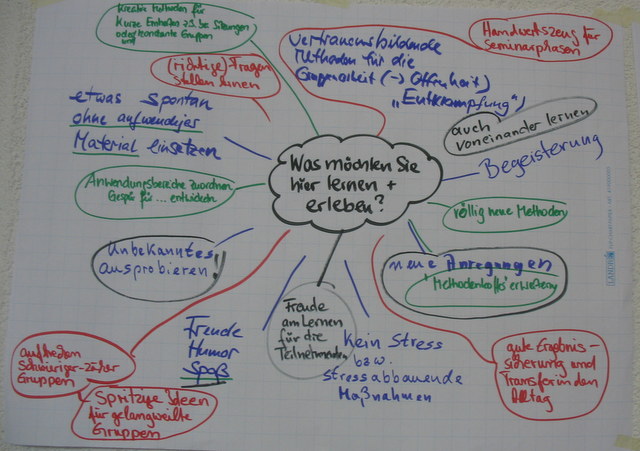 Kreative Methoden für
kurze Einheiten z.B. bei Sitzungen
oder konstante Gruppen
und
(richtige) Fragen
stellen lernen
vertrauensbildende
Methoden für die
Gruppenarbeit (→ Offenheit)
„Entkrampfung")
Handwerkszeug für
Seminarphasen
etwas spontan
ohne aufwendiges
Material einsetzen
auch
voneinander lernen
Begeisterung
Was möchten Sie
hier lernen +
erleben?
Anwendungsbereiche zuordnen
Gespür für ... entwickeln
völlig neue Methoden
Unbekanntes
ausprobieren!
neue Anregungen
Methodenkoffer erweitern
Freude
Humor
Spaß
Freude
am Lernen
für die
Teilnehmenden
Kein Stress
bzw.
stressabbauende
Maßnahmen
gute Ergebnis-
sicherung und
Transfer in den
Alltag
Gruppen
Spritzige Ideen
für gelangweilte
Gruppen